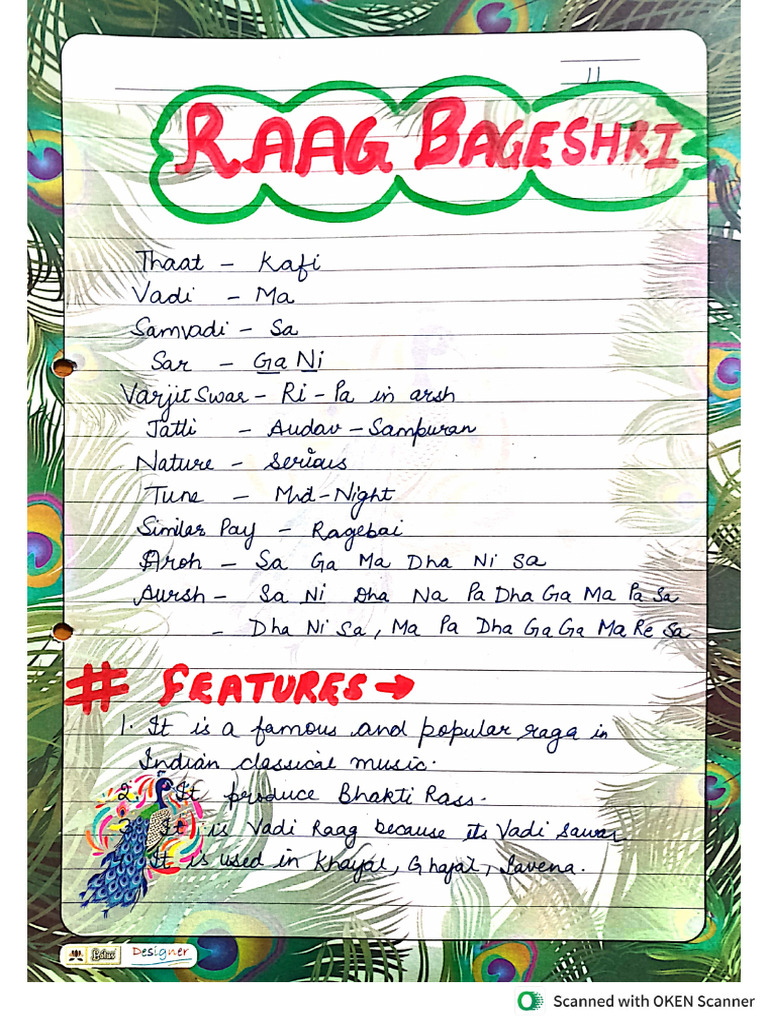 11
RAAG BAGESHRI
Thaat - Kafi
Vadi - Ma
Samvadi - Sa
Sar - Ga Ni
Varjit Swar - Ri - Pa in arsh
Jatli - Audav - Sampuran
Nature - Serious
Tune - Mid-Night
Similar Pay - Ragebai
Aroh - Sa Ga Ma Dha Ni Sa
Aursh - Sa Ni Dha Na Pa Dha Ga Ma Pa Sa
- Dha Ni Sa, Ma Pa Dha Ga Ga Ma Re Sa
# FEATURES →
1. It is a famous and popular raga in
Indian classical music.
2. It produce Bhakti Rass.
It is Vadi Raag because its Vadi Sawar
4. It is used in Khayal, Ghajal, Savena.
Lotus Designer
Scanned with OKEN Scanner